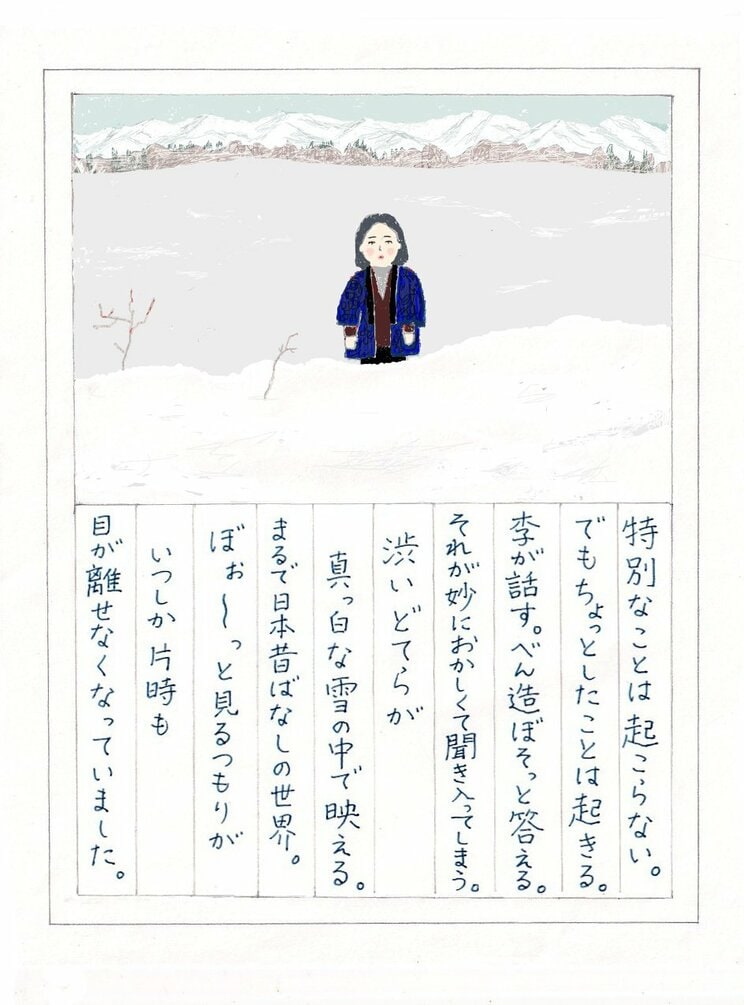 特別なことは起こらない。
でもちょっとしたことは起きる。
李が話す。べん造ぼそっと答える。
それが妙におかしくて聞き入ってしまう。
渋いどてらが
真っ白な雪の中で映える。
まるで日本昔ばなしの世界。
ぼぉ〜っと見るつもりが
いつしか片時も
目が離せなくなっていました。